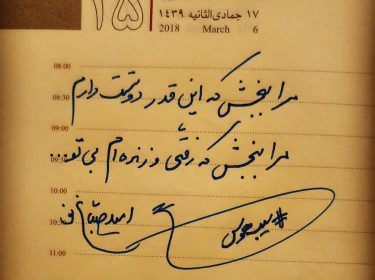 ۱۵
۱۷ جمادی الثانیه ۱۴۳۹
2018 March 6
08:00
مرا ببخش که این قدر دوستت دارم
08:30
09:00
مرا ببخش که رفتی و زنده ام بی تو...
09:30
10:00
امید صباغ نو
10:30
#سیب_هوس
11:00